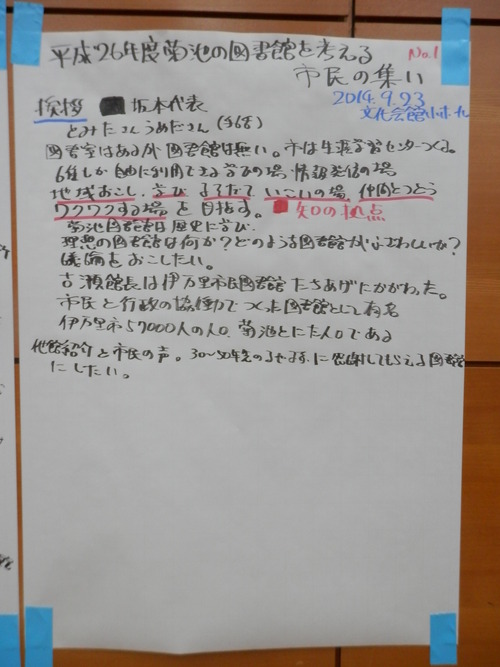 平成26年度菊池の図書館を考える
No.1
市民の集い
2014.9.23
文化会館小ホール
挨拶 坂本代表
とみたさんうめださん(手話)
図書室はあるが図書館は無い。市は生涯学習センターつくる。
自由に利用できる学びの場 情報発信の場
地域おこし、学び 子そだて いこいの場 仲間とつどう
ワクワクする場を目指す。 知の拠点
菊池図書館は歴史に学び、
理想の図書館は何か?どのような図書館がふさわしいか?
議論をおこしたい。
古瀬館長は伊万里市民図書館 たちあげにかかわった。
市民と行政の協働でつくった図書館として有名
伊万里市57000人の人口 菊池とにた人口である
他館紹介と市民の声。30〜50年先の に感謝してもらえる図書館
にしたい。